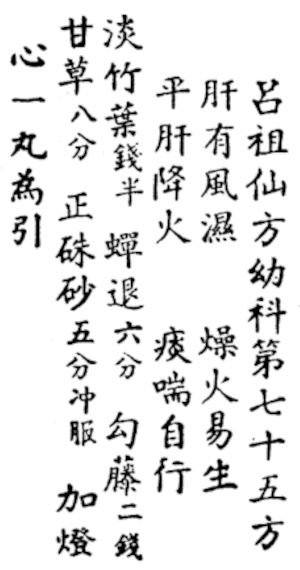 呂祖仙方幼科第七十五方
肝有風濕 燥火易生
平肝降火 痰喘自行
淡竹葉錢半 蟬退六分 勾藤二錢
甘草八分 正硃砂五分冲服 加燈
心一丸為引